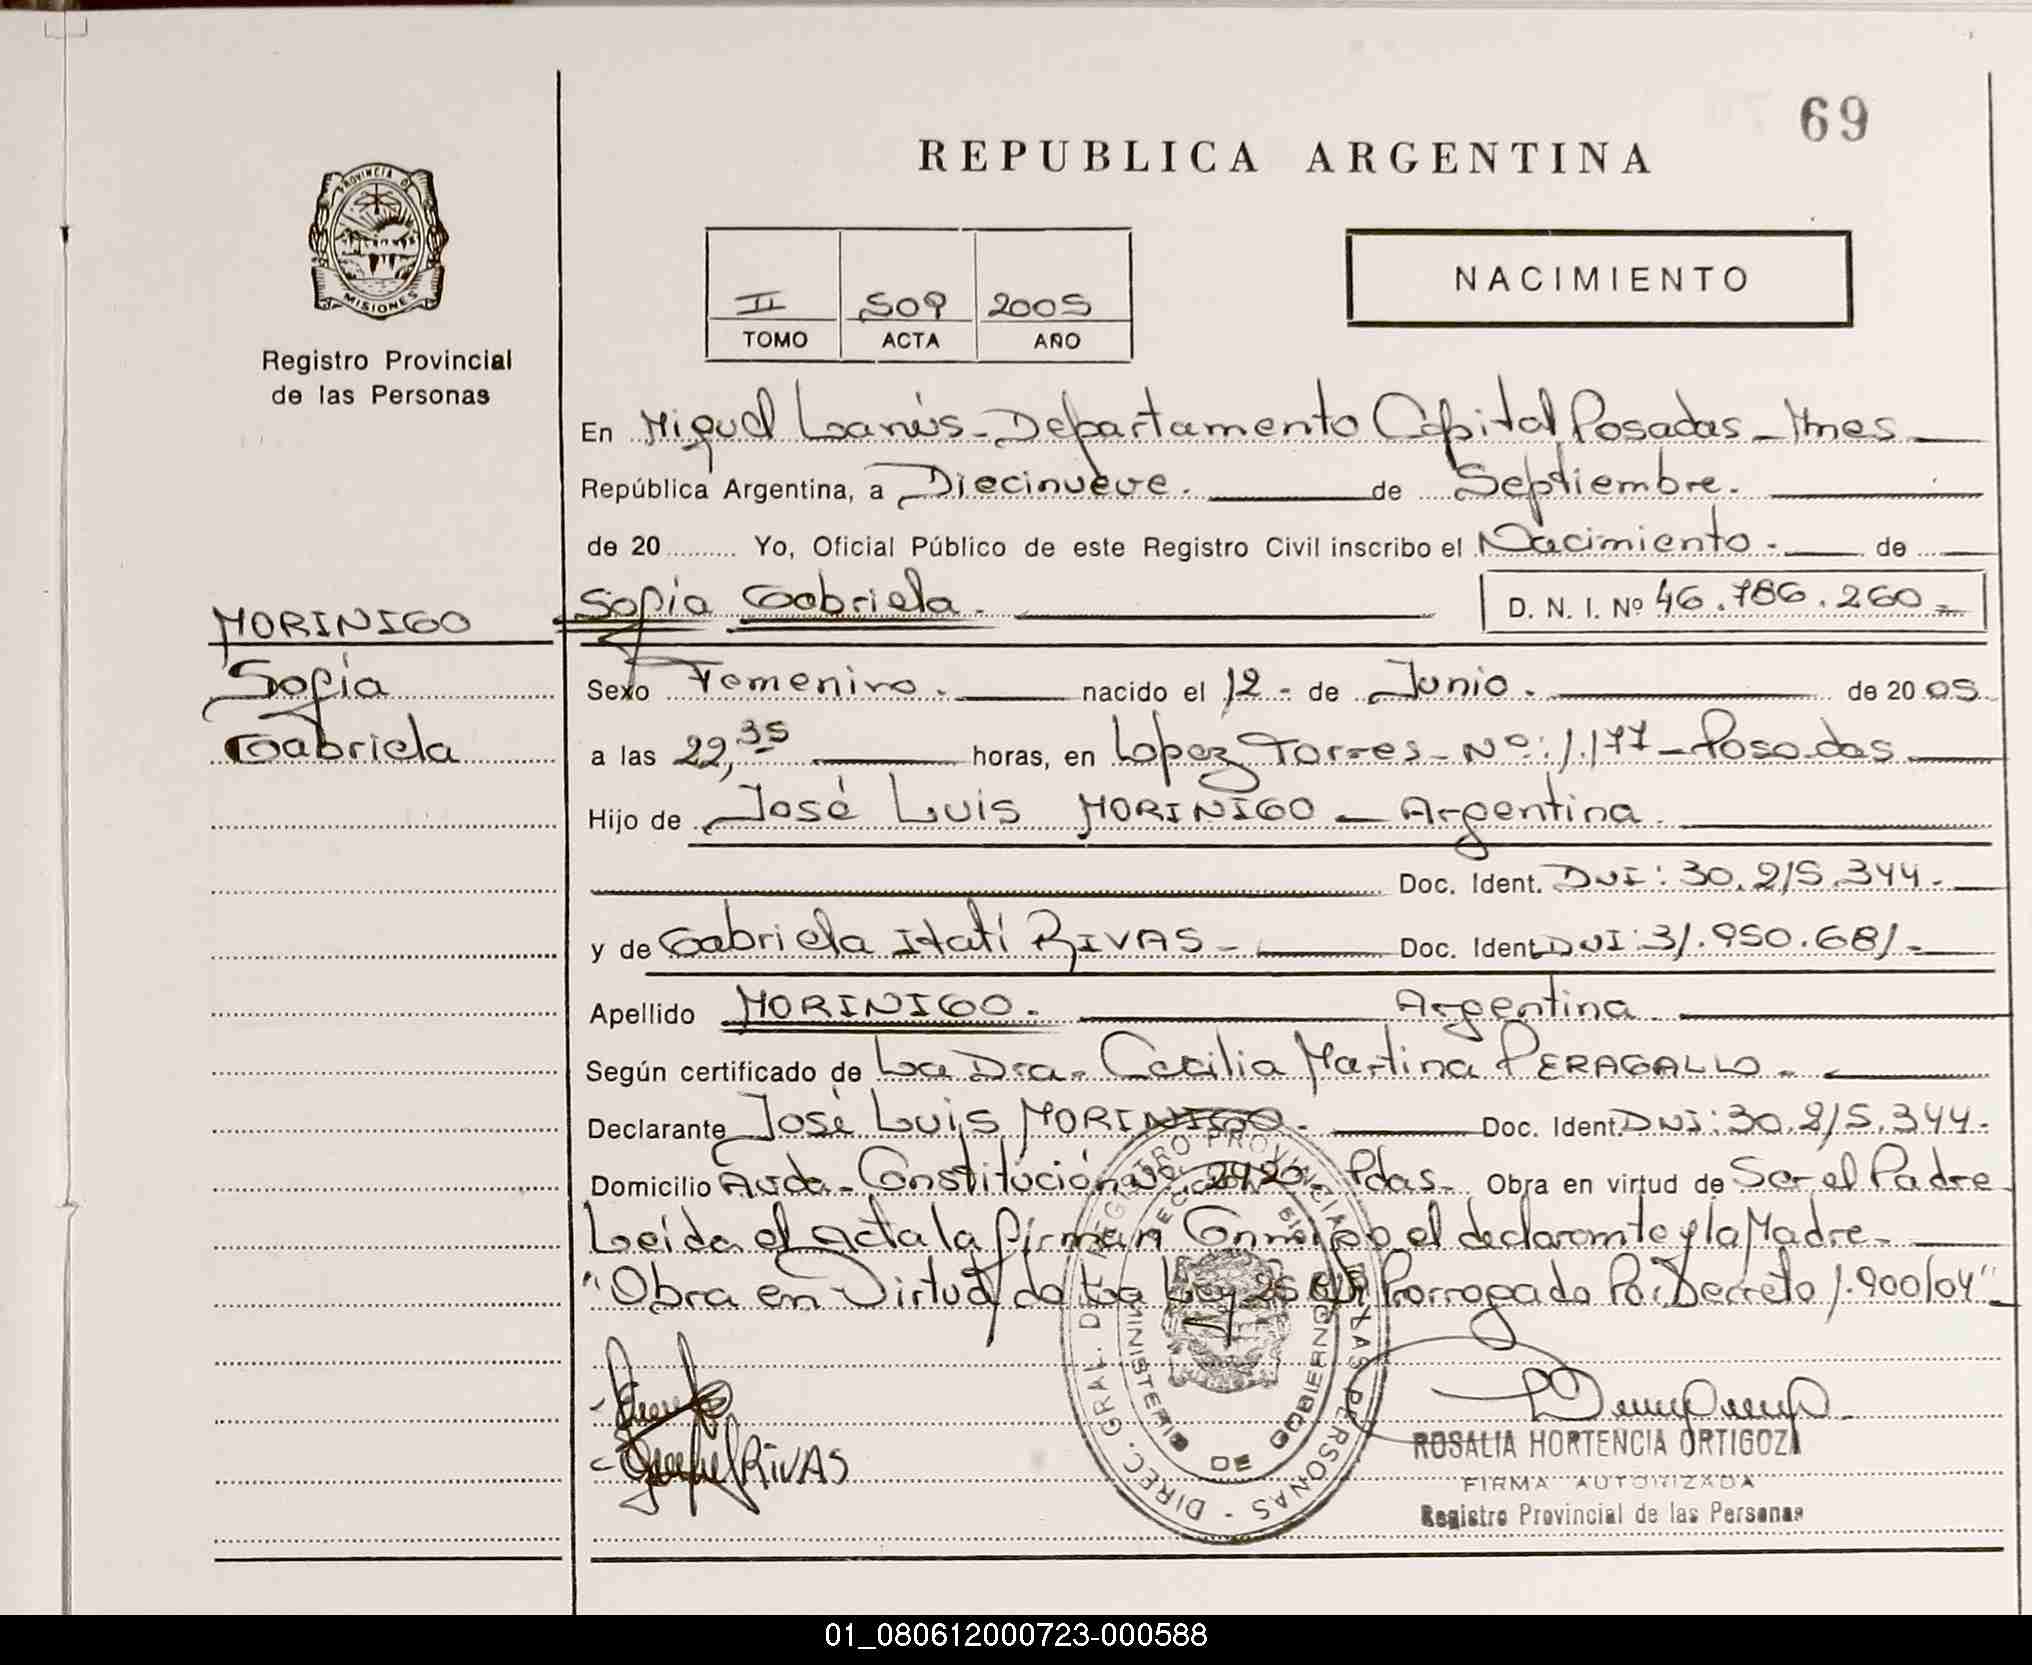 69
REPUBLICA ARGENTINA
PROVINCIA DE
MISIONES
NACIMIENTO
II 509 2005
TOMO ACTA AÑO
Registro Provincial
de las Personas
En Miguel Lanús - Departamento Capital Posadas - Mnes
República Argentina, a Diecinueve. de Septiembre.
de 20 .......... Yo, Oficial Público de este Registro Civil inscribo el Nacimiento. de
Sofía Gabriela. D. N. I. Nº 46.786.260
MORINIGO
Sofía
Gabriela
Sexo Femenino. nacido el 12 - de Junio. de 2005
a las 22,35 horas, en Lopez Torres - Nº: 1.177 - Posadas
Hijo de José Luis MORINIGO - Argentina.
Doc. Ident. DNI: 30.215.344.
y de Gabriela Itatí RIVAS - Doc. Ident. DNI: 31.950.681.
Apellido MORINIGO. Argentina
Según certificado de La Dra. Cecilia Martina PERAGALLO.
Declarante José Luis MORINIGO. Doc. Ident. DNI: 30.215.344.
Domicilio Avda. Constitución Nº 2420 Pdas. Obra en virtud de Ser el Padre
Leida el acta la firman Conmigo el declarante y la Madre.
"Obra en Virtud de La Ley Prorrogada Por Decreto 1.900/04"
RIVAS
DIREC. GRAL. DE REGISTRO PROVINCIAL DE LAS PERSONAS -
MINISTERIO DE GOBIERNO
ROSALIA HORTENCIA ORTIGOZA
FIRMA AUTORIZADA
Registro Provincial de las Personas
01_080612000723-000588